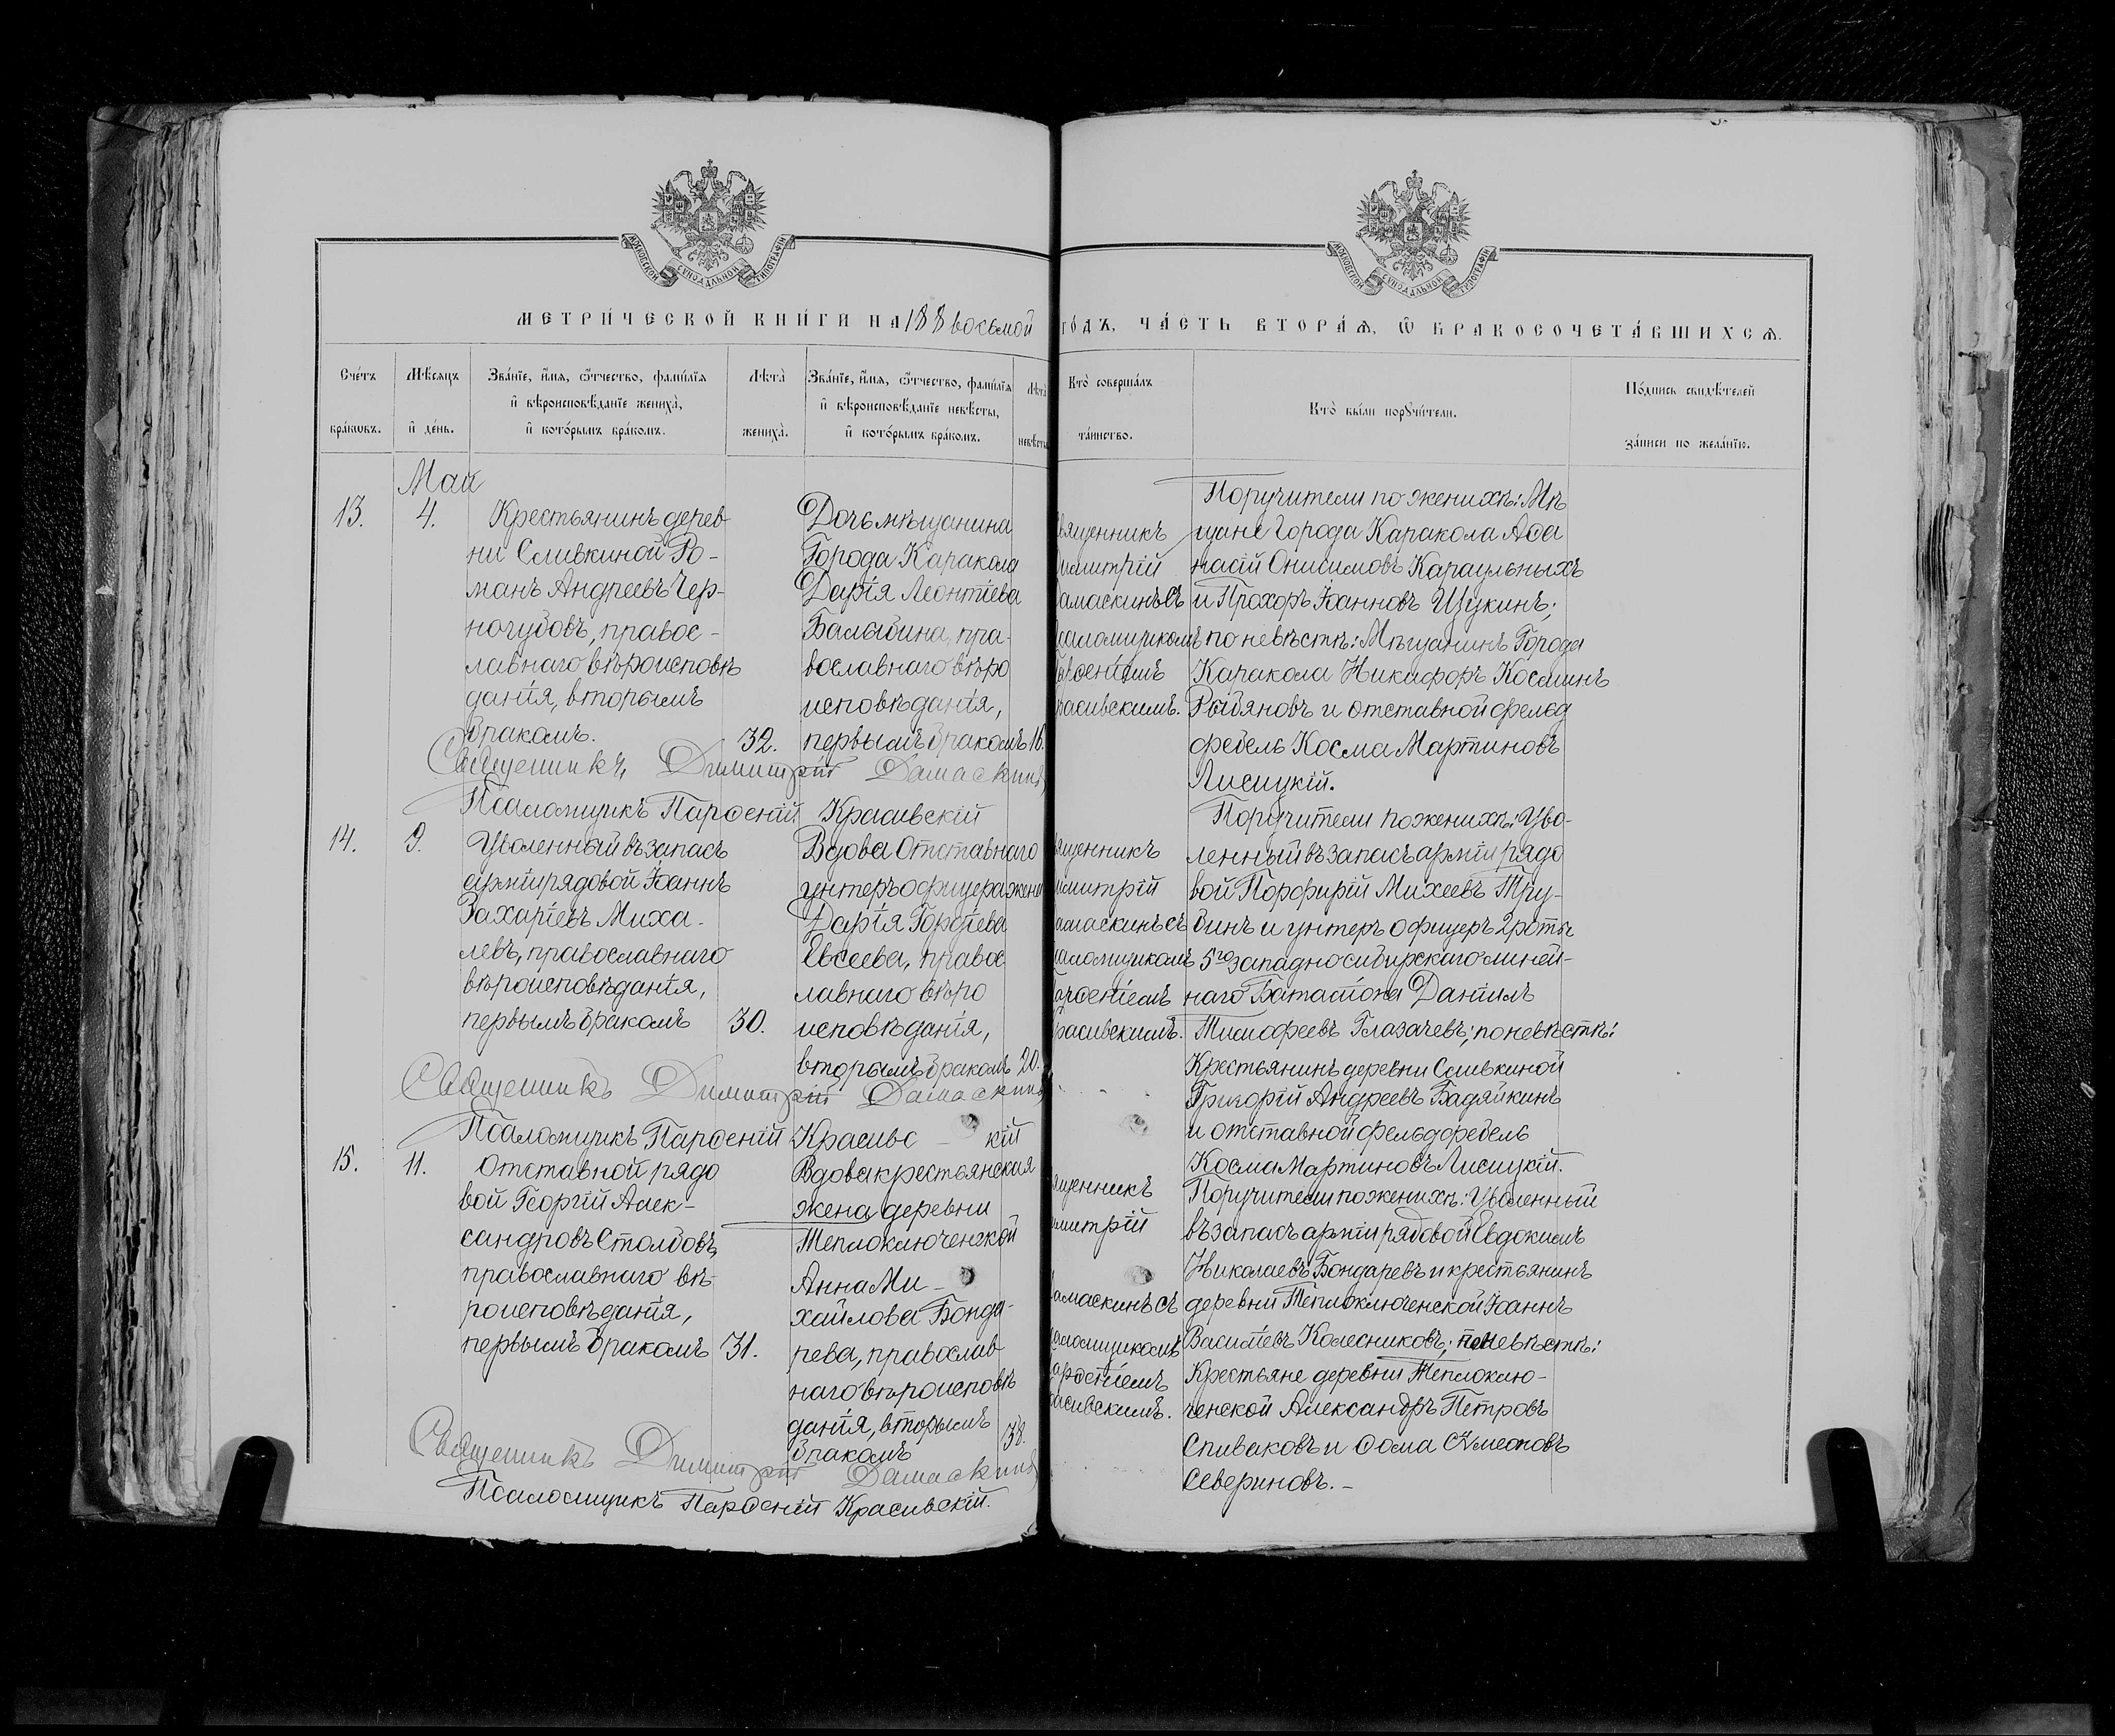 МОСКОВСКОЙ СѴНОДАЛЬНОЙ ТИПОГРАФІИ
МОСКОВСКОЙ СѴНОДАЛЬНОЙ ТИПОГРАФІИ
МЕТРИ́ЧЕСКОЙ КНИ́ГИ НА 188восьмой
ГО́ДЪ, ЧА́СТЬ ВТОРА́Ѧ, Ѿ БРАКОСОЧЕТА́ВШИХСѦ.
Сче́тъ
бра́кѡвъ.
Мѣ́сяцъ
и҆ де́нь.
Зва́нїе, и҆́мѧ, ѻ҆́тчество, фами́лїѧ
и҆ вѣроисповѣ́данїе жениха̀,
и҆ кото́рымъ бра́комъ.
Лѣ́та̀
жениха̀.
Зва́нїе, и҆́мѧ, ѻ҆́тчество, фами́лїѧ
и҆ вѣроисповѣ́данїе невѣ́сты,
и҆ кото́рымъ бра́комъ.
Лѣ́та̀
невѣ́сты
Кто̀ соверша́лъ
та́инство.
Кто̀ бы́ли порꙋчи́тели.
По́дпись свидѣ́телей
за́писи по жела́нїю.
Май
13.
4.
Крестьянинъ дерев
ни Сливкиной Ро-
манъ Андреевъ Чер-
ночубовъ, правос-
лавнаго вѣроисповѣ
данія, вторымъ
бракомъ.
32.
Дочь мѣщанина
Города Каракола
Дарія Леонтіева
Балабина, пра-
вославнаго вѣро
исповѣданія,
первымъ бракомъ
16.
вященникъ
имитрій
амаскинъ съ
саломщикомъ
арѳеніемъ
расивскимъ.
Поручители по женихѣ: Мѣ
щане Города Каракола Аѳа
насій Онисимовъ Караульныхъ
и Прохоръ Іоанновъ Щукинъ;
по невѣстѣ: Мѣщанинъ Города
Каракола Никифоръ Косминъ
Рыбяновъ и отставной фельд
фебель Косма Мартиновъ
Лисицкій.
Священникъ Димитрій Дамаскинъ
Псаломщикъ Парѳеній Красивскій
14.
9.
Уволенный въ запасъ
арміи рядовой Іоаннъ
Захаріевъ Миха-
левъ, православнаго
вѣроисповѣданія,
первымъ бракомъ
30.
Вдова Отставнаго
унтеръ офицера жена
Дарія Гордіева
Евсеева, правос
лавнаго вѣро
исповѣданія,
вторымъ бракомъ
20.
ященникъ
имитрій
амаскинъ съ
саломщикомъ
арѳеніемъ
расивскимъ.
Поручители по женихѣ: Уво-
ленный въ запасъ арміи рядо
вой Порфирій Михеевъ Тру-
бинъ и унтеръ офицеръ 2 роты
5го западно сибирскаго линей-
наго Баталіона Даніилъ
Тимофеевъ Глазачевъ; по невѣстѣ:
Крестьянинъ деревни Сливкиной
Григорій Андреевъ Бадяйкинъ
и отставной фельдфебель
Косма Мартиновъ Лисицкій.
Священникъ Димитрій Дамаскинъ
Псаломщикъ Парѳеній Красивс - кій
15.
11.
Отставной рядо
вой Георгій Алек-
сандровъ Столбовъ,
православнаго вѣ-
роисповѣданія,
первымъ бракомъ
31.
Вдова крестьянская
жена деревни
Теплоключенской
Анна Ми-
хайлова Бонда-
рева, православ
наго вѣроисповѣ
данія, вторымъ
бракомъ
38.
ященникъ
имитрій
амаскинъ съ
саломщикомъ
арѳеніемъ
расивскимъ.
Поручители по женихѣ: Уволенный
въ запасъ арміи рядовой Евдокимъ
Николаевъ Бондаревъ и крестьянинъ
деревни Теплоключенской Іоаннъ
Василіевъ Колесниковъ; по невѣстѣ:
Крестьяне деревни Теплоклю-
ченской Александръ Петровъ
Спиваковъ и Ѳома Сѵмеоновъ
Севериновъ. -
Священникъ Димитрій Дамаскинъ
Псаломщикъ Парѳеній Красивскій.